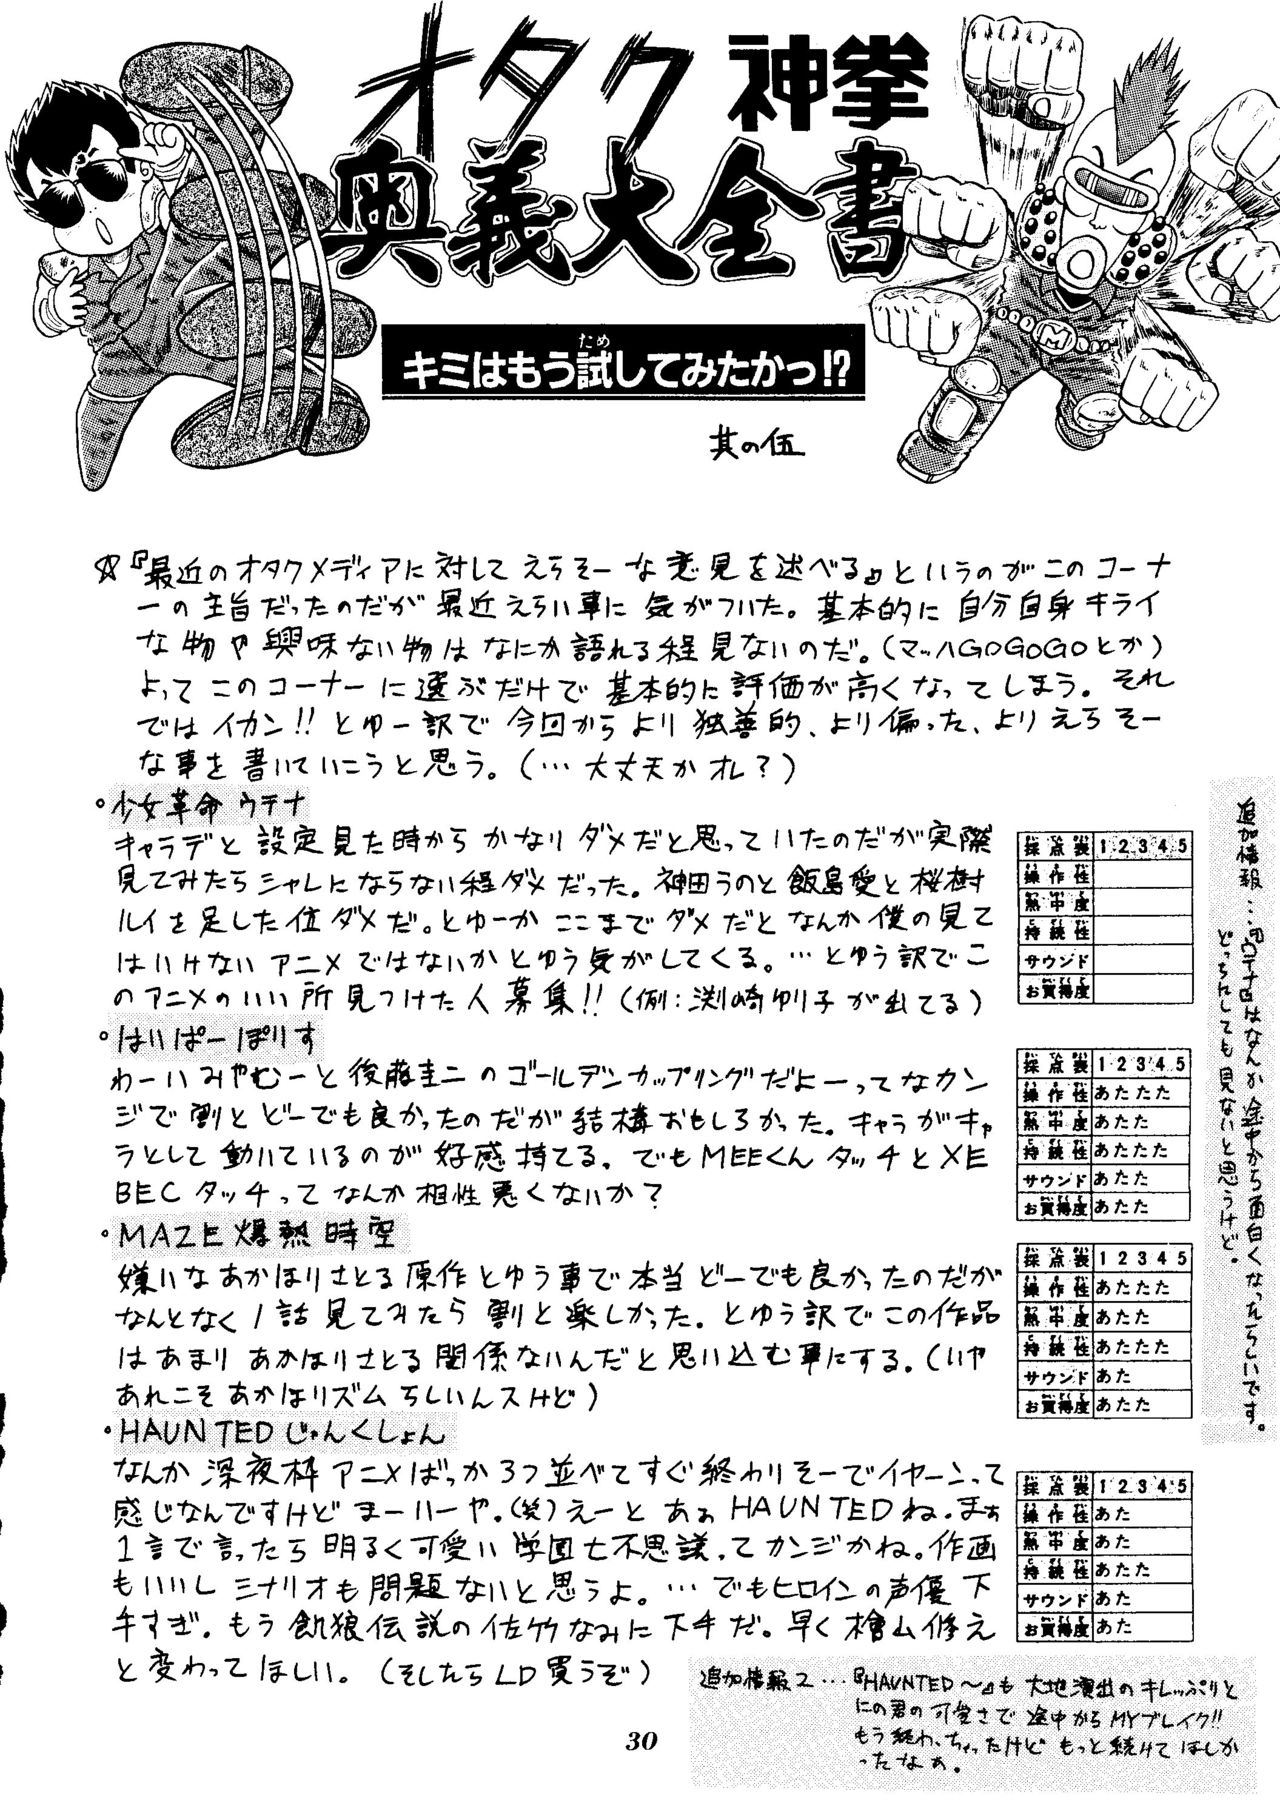 オタク神拳
奥義大全書
キミはもう試してみたかっ!?
ため
其の伍
☆『最近のオタクメディアに対してえらそーな意見を述べる』というのがこのコーナ
ーの主旨だったのだが最近えらい事に気がついた。基本的に自分自身キライ
な物や興味ない物はなにか語れる程見ないのだ。(マッハGOGOGOとか)
よってこのコーナーに選ぶだけで基本的に評価が高くなってしまう。それ
ではイカン!!とゆー訳で今回からより独善的、より偏った、よりえらそー
な事を書いていこうと思う。(…大丈夫かオレ?)
・少女革命ウテナ
キャラデと設定見た時からかなりダメだと思っていたのだが実際
見てみたらシャレにならない程ダメだった。神田うのと飯島愛と桜樹
ルイを足した位ダメだ。とゆーかここまでダメだとなんか僕の見て
はいけないアニメではないかとゆう気がしてくる。…とゆう訳でこ
のアニメのいい所見つけた人募集!!(例:渕崎ゆり子が出てる)
採点表 1 2 3 4 5
操作性
熱中度
持続性
サウンド
お買得度
・はいぱーぽりす
わーいみやむーと後藤圭二のゴールデンカップリングだよーってなカン
ジで割とどーでも良かったのだが結構おもしろかった。キャラがキャ
ラとして動いているのが好感持てる。でもMEEくんタッチとXE
BECタッチってなんか相性悪くないか?
採点表 1 2 3 4 5
操作性 あたたた
熱中度 あたた
持続性 あたたた
サウンド あたた
お買得度 あたた
・MAZE爆熱時空
嫌いなあかほりさとる原作とゆう事で本当どーでも良かったのだが
なんとなく1話見てみたら割と楽しかった。とゆう訳でこの作品
はあまりあかほりさとる関係ないんだと思い込む事にする。(いや
あれこそあかほりズムらしいんスけど)
採点表 1 2 3 4 5
操作性 あたたた
熱中度 あたた
持続性 あたたた
サウンド あた
お買得度 あたた
・HAUNTEDじゃんくしょん
なんか深夜枠アニメばっか3つ並べてすぐ終わりそーでイヤーンって
感じなんですけどまーいーや。(笑)えーとあぁHAUNTEDね。まぁ
1言で言ったら明るく可愛い学園七不思議ってカンジかね。作画
もいいしシナリオも問題ないと思うよ。…でもヒロインの声優下
手すぎ。もう餓狼伝説の佐竹なみに下手だ。早く檜山修え
と変わってほしい。(そしたらLD買うぞ)
採点表 1 2 3 4 5
操作性 あた
熱中度 あた
持続性 あたた
サウンド あた
お買得度 あた
追加情報…『ウテナ』はなんか途中から面白くなったらしいです。
どっちにしても見ないと思うけど。
追加情報2…『HAUNTED〜』も大地演出のキレっぷりと
にの君の可愛さで途中からMYブレイク!!
もう終わっちゃったけどもっと続けてほしか
ったなぁ。
30